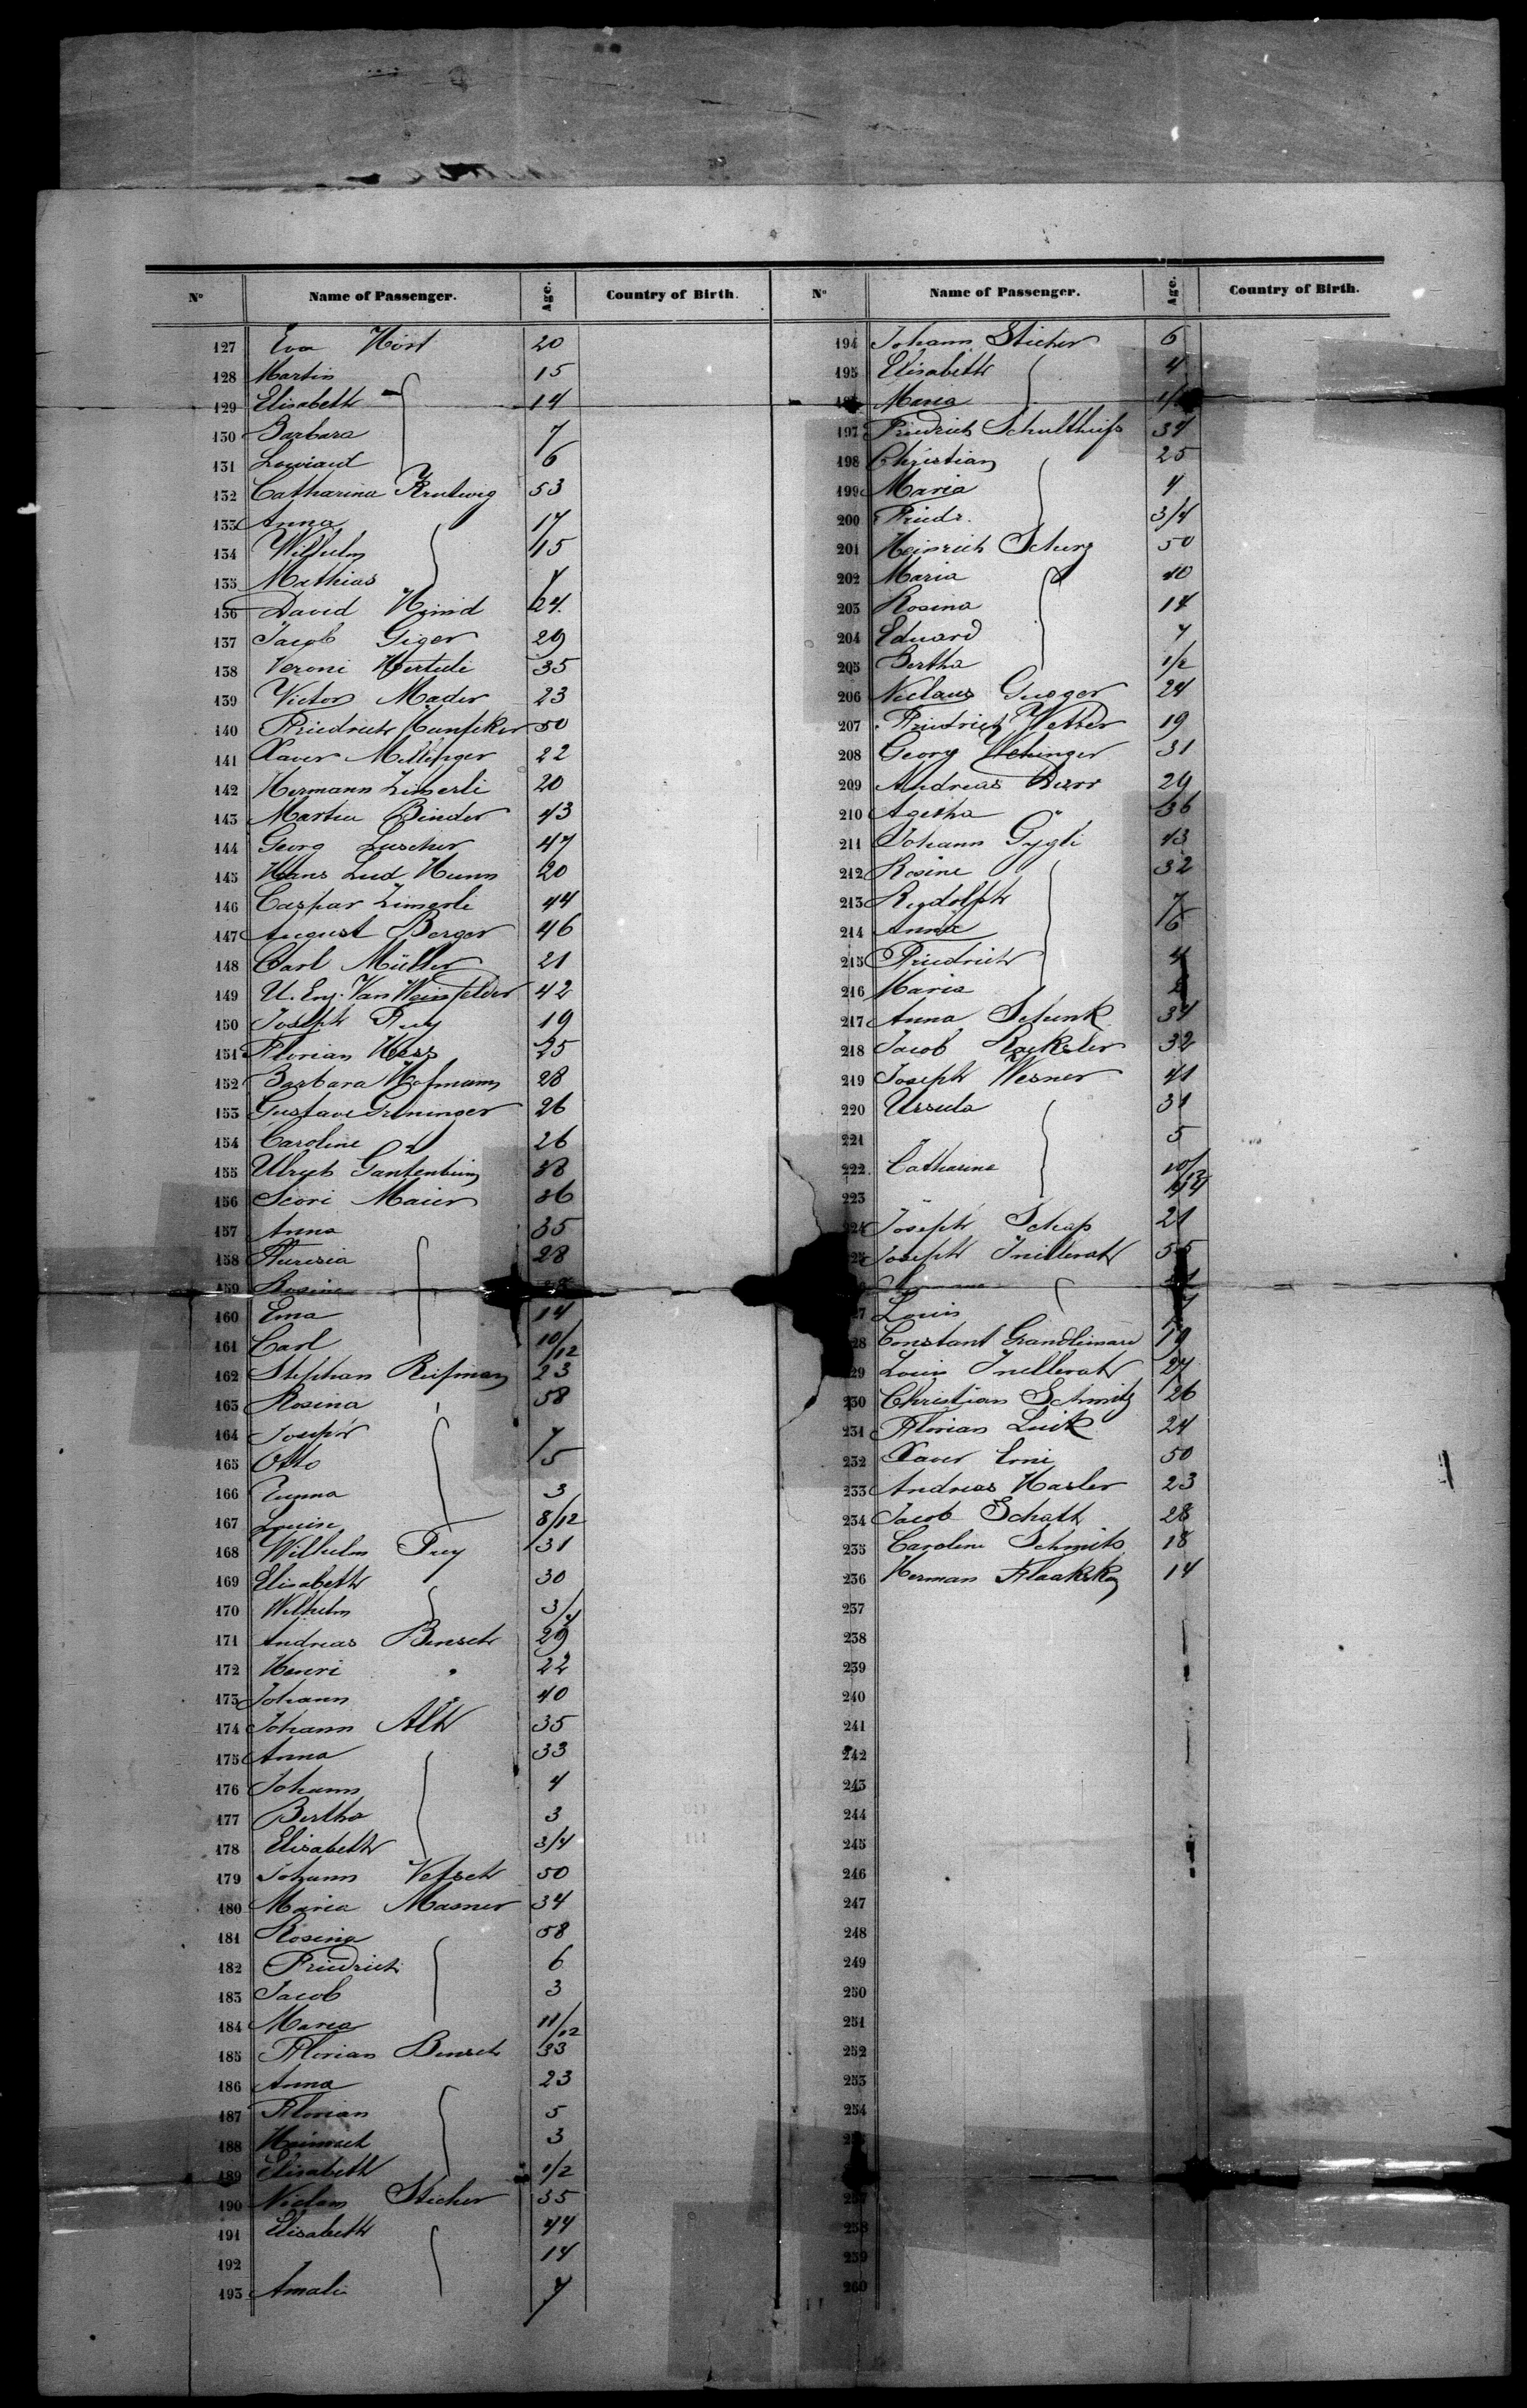 No Name of Passenger. Age. Country of Birth.
127 Eva Hörl 20
128 Martin 15
129 Elisabeth 14
130 Barbara 7
131 6
132 Catharina Krulwig 53
133 Anna 17
134 Wilhelm 15
135 Mathias 7
136 David 24
137 Jacob Giger 29
138 Veroni 35
139 Victor Mader 23
140 Friedrich Hunsiker 50
141 Xaver 22
142 Hermann Zimerli 20
143 Martin Binder 43
144 Georg Luscher 47
145 Hans Lud Hunn 20
146 Caspar Zimerli 44
147 August Berger 46
148 Carl Müller 21
149 Van Weinfelder 42
150 Joseph Frey 19
151 Florian Hess 25
152 Barbara Hofmann 28
153 Gustave Grininger 26
154 Caroline 26
155 Ulrych Gantenbein 38
156 Maier 36
157 Anna 35
158 Theresia 28
159 Rosine
160 Ema 14
161 Carl 10/12
162 Stephan Risman 23
163 Rosina 58
164 Joseph 7
165 Otto 5
166 Emma 3
167 Louise 8/12
168 Wilhelm Frey 31
169 Elisabeth 30
170 Wilhelm 3/4
171 Andreas Bensch 29
172 Henri " 22
173 Johann " 40
174 Johann Alth 35
175 Anna 33
176 Johann 4
177 Bertha 3
178 Elisabeth 3/4
179 Johann Vetsch 50
180 Maria Masner 34
181 Rosina 58
182 Friedrich 6
183 Jacob 3
184 Maria 11/12
185 Florian Bensch 33
186 Anna 23
187 Florian 5
188 Heinrich 3
189 Elisabeth 1/2
190 Niclaus Sticher 35
191 Elisabeth 44
192 14
193 Amali 7
No Name of Passenger. Age. Country of Birth.
194 Johann Sticher 6
195 Elisabeth 4
Maria
197 Friedrich Schultheiss 34
198 Christian 25
199 Maria 4
200 Friedr. 3/4
201 Heinrich Scherz 50
202 Maria 40
203 Rosina 14
204 Eduard 7
205 Bertha 1/2
206 Niclaus Gugger 24
207 Friedrich Wetter 19
208 Georg Wehinger 31
209 Andreas Durr 29
210 Agetha 36
211 Johann Gygli 43
212 Rosine 32
213 Rudolph 7
214 Anna 6
215 Friedrich 4
216 Maria
217 Anna Schenk 34
218 Jacob 32
219 Joseph Wesner 41
220 Ursula 31
221 5
222 Catharina 10/12
223
Joseph Schap 21
Joseph Inillerat 55
Louis
Constant Grandlimard 19
Louis Inillerat 27
230 Christian Schmitz 26
231 Florian Luik 24
232 Xaver Erni 50
233 Andreas Hasler 23
234 Jacob Schatt 28
235 Caroline Schmits 18
236 Herman Flaakskg 14
237
238
239
240
241
242
243
244
245
246
247
248
249
250
251
252
253
254
257
258
259
260